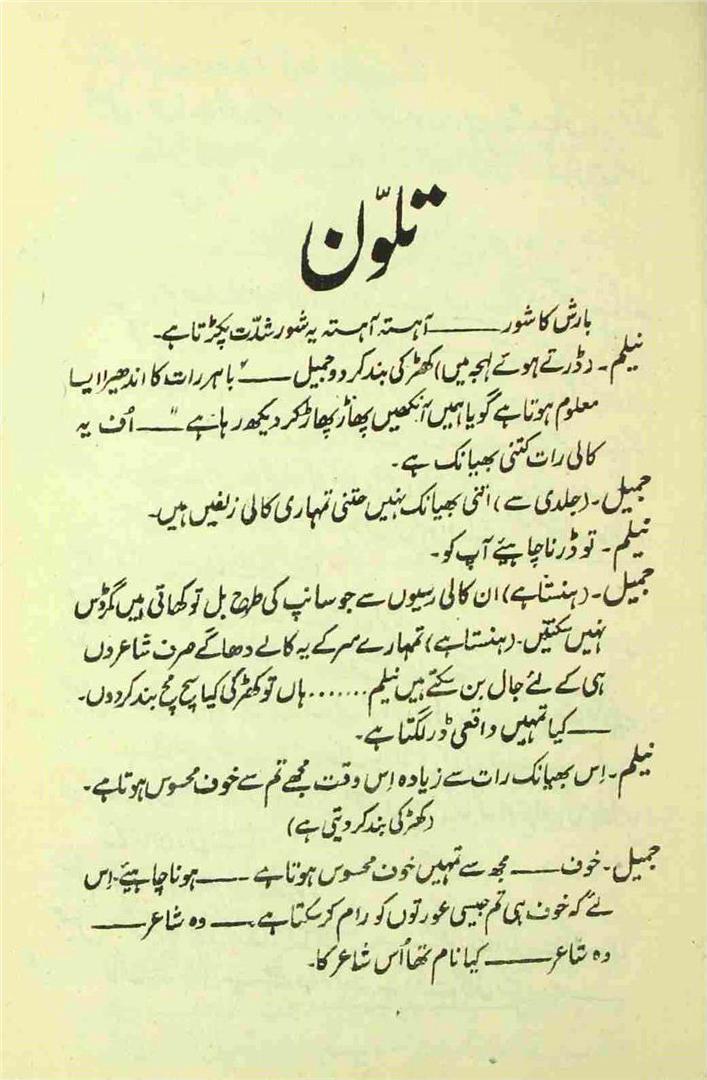 تلوّن
بارش کا شور ـــــــ آہستہ آہستہ یہ شور شدّت پکڑتا ہے۔
نیلم۔ (ڈرتے ہوئے لہجہ میں) کھڑکی بند کر دو جمیل ـــــــ "باہر رات کا اندھیرا ایسا
معلوم ہوتا ہے گویا ہمیں آنکھیں پھاڑ پھاڑ کر دیکھ رہا ہے" ـــــــ اُف یہ
کالی رات کتنی بھیانک ہے۔
جمیل۔ (جلدی سے) اتنی بھیانک نہیں جتنی تمہاری کالی زلفیں ہیں۔
نیلم۔ تو ڈرنا چاہیئے آپ کو۔
جمیل۔ (ہنستا ہے) ان کالی رسیوں سے جو سانپ کی طرح بل تو کھاتی ہیں مگر ڈس
نہیں سکتیں۔ (ہنستا ہے) تمہارے سر کے یہ کالے دھاگے صرف شاعروں
ہی کے لئے جال بن سکتے ہیں نیلم ....... ہاں تو کھڑکی کیا سچ مچ بند کردوں۔
ـــــــ کیا تمہیں واقعی ڈر لگتا ہے۔
نیلم۔ اِس بھیانک رات سے زیادہ اِس وقت مجھے تم سے خوف محسوس ہوتا ہے۔
(کھڑکی بند کر دیتی ہے)
جمیل۔ خوف ـــــــ مجھ سے تمہیں خوف محسوس ہوتا ہے ـــــــ ہونا چاہیئے۔ اِس
لئے کہ خوف ہی تم جیسی عورتوں کو رام کر سکتا ہے ـــــــ وہ شاعر ـــــــ
وہ شاعر ـــــــ کیا نام تھا اُس شاعر کا۔